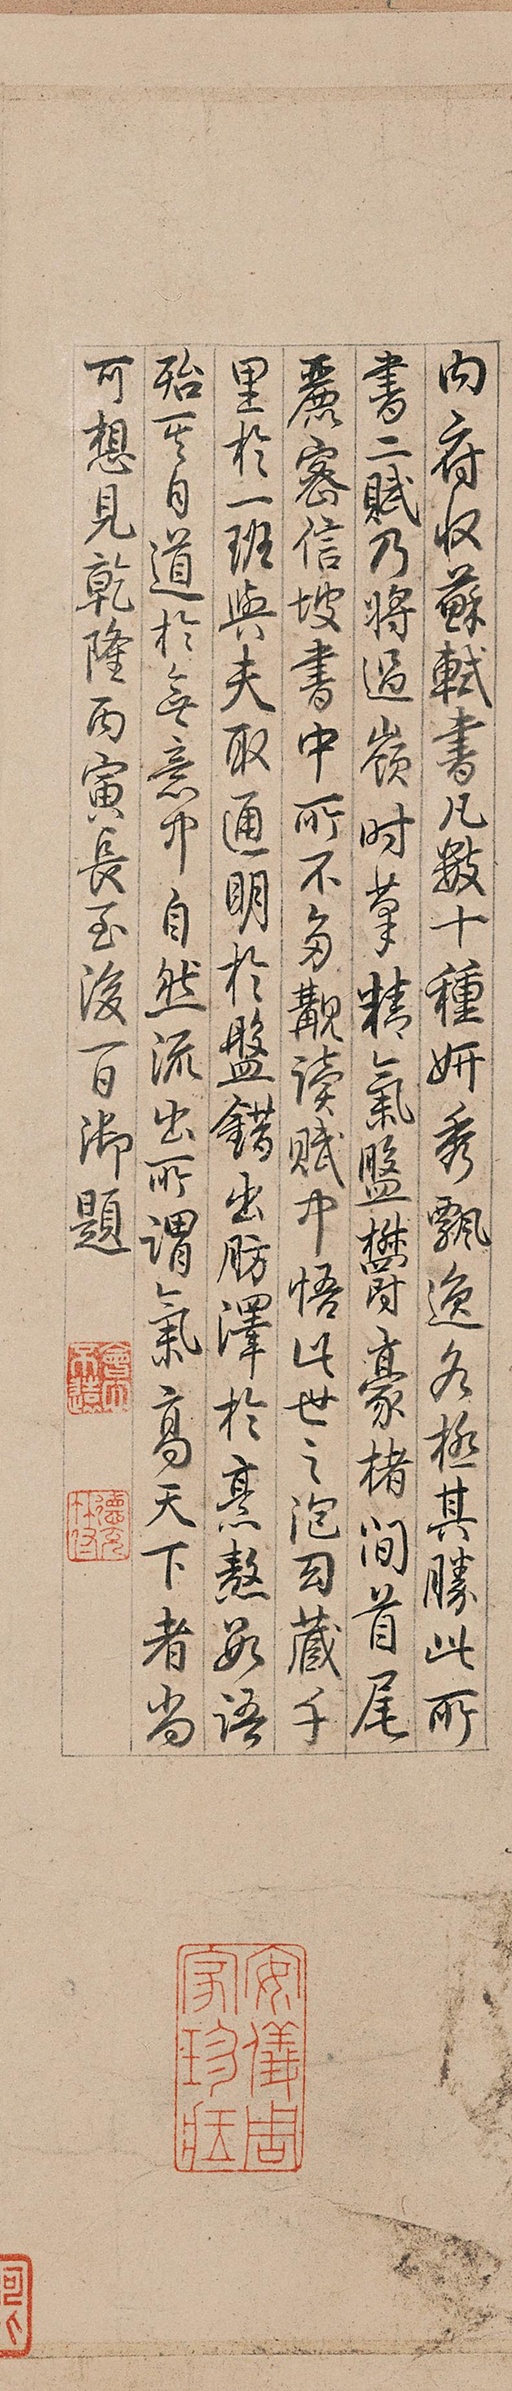 內府收蘇軾書凡數十種妍秀飄逸各極其勝此所
書二賦乃將過嶺時筆精氣盤欝豪楮間首尾
麗密信坡書中所不多覯讀賦中悟此世之泡幻藏千
里於一班與夫取通明於盤錯出肪澤於烹熬數語
殆其自道於無意中自然流出所謂氣高天下者尚
可想見乾隆丙寅長至後一日御題
會心不遠
德充符
安儀周家珍藏